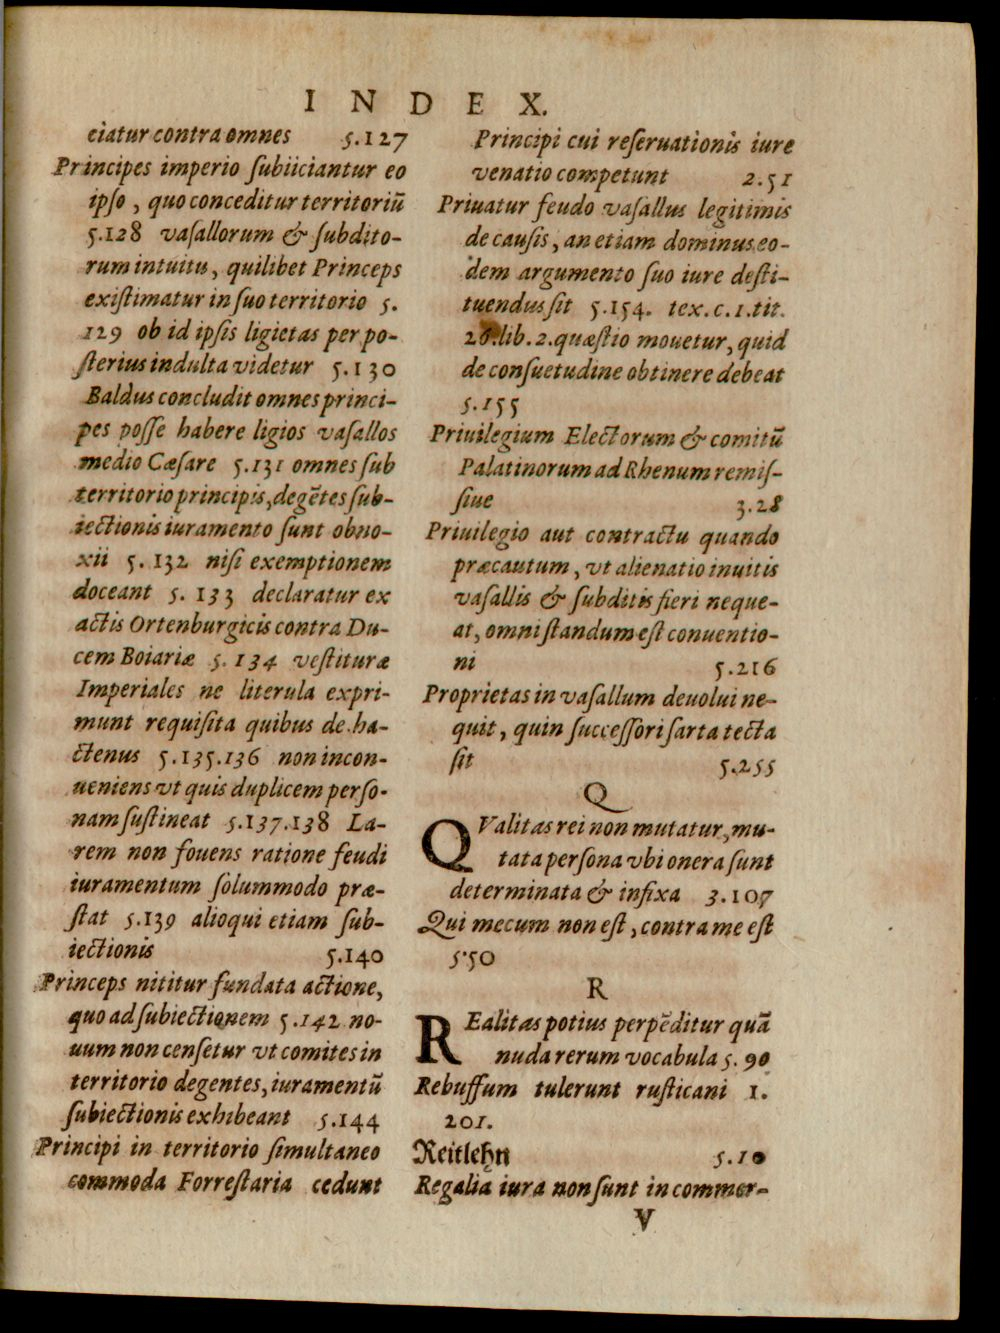 INDEX.
ciatur contra omnes 5.127
Principes imperio ſubiiciantur eo
ipſo, quo conceditur territoriũ
5.128 vaſallorum & ſubdito-
rum intuitu, quilibet Princeps
exiſtimatur in ſuo territorio 5.
129 ob id ipſis ligietas per po-
ſterius indulta videtur 5.130
Baldus concludit omnes princi-
pes poſſe habere ligios vaſallos
medio Cæſare 5.131 omnes ſub
territorio principis, degẽtes ſub-
iectionis iuramento ſunt obno-
xii 5.132 niſi exemptionem
doceant 5.133 declaratur ex
actis Ortenburgicis contra Du-
cem Boiariæ 5.134 veſtituræ
Imperiales ne literula expri-
munt requiſita quibus de ha-
ctenus 5.135.136 non incon-
ueniens vt quis duplicem perſo-
nam ſuſtineat 5.137.138 La-
rem non fouens ratione feudi
iuramentum ſolummodo præ-
ſtat 5.139 alioqui etiam ſub-
iectionis 5.140
Princeps nititur fundata actione,
quo ad ſubiectionem 5.142 no-
uum non cenſetur vt comites in
territorio degentes, iuramentũ
ſubiectionis exhibeant 5.144
Principi in territorio ſimultaneo
commoda Forreſtaria cedunt
Principi cui reſeruationis iure
venatio competunt 2.51
Priuatur feudo vaſallus legitimis
de cauſis, an etiam dominus eo-
dem argumento ſuo iure deſti-
tuendus ſit 5.154. tex. c. 1. tit.
26. lib. 2. quæſtio mouetur, quid
de conſuetudine obtinere debeat
5.155
Priuilegium Electorum & comitũ
Palatinorum ad Rhenum remiſ-
ſiue 3.28
Priuilegio aut contractu quando
præcautum, vt alienatio inuitis
vaſallis & ſubditis fieri neque-
at, omni ſtandum eſt conuentio-
ni 5.216
Proprietas in vaſallum deuolui ne-
quit, quin ſucceſſori ſarta tecta
ſit 5.255
Q
QValitas rei non mutatur, mu-
tata perſona vbi onera ſunt
determinata & infixa 3.107
Qui mecum non eſt, contra me eſt
5.50
R
REalitas potius perpẽditur quã
nuda rerum vocabula 5.90
Rebuffum tulerunt ruſticani 1.
201.
Reitlehn 5.10
Regalia iura non ſunt in commer-
V